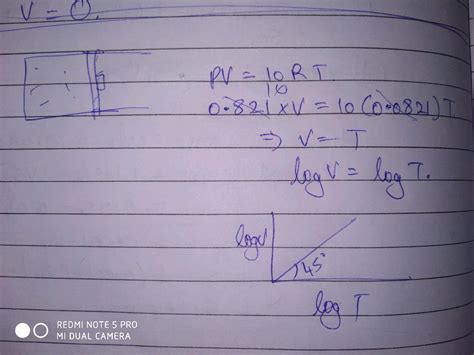 V = 0.
PV = 10 R T
10
0.821 x V = 10 (0.0821) T
⇒ V = T
log V = log T.
log V
45°
log T
REDMI NOTE 5 PRO
MI DUAL CAMERA